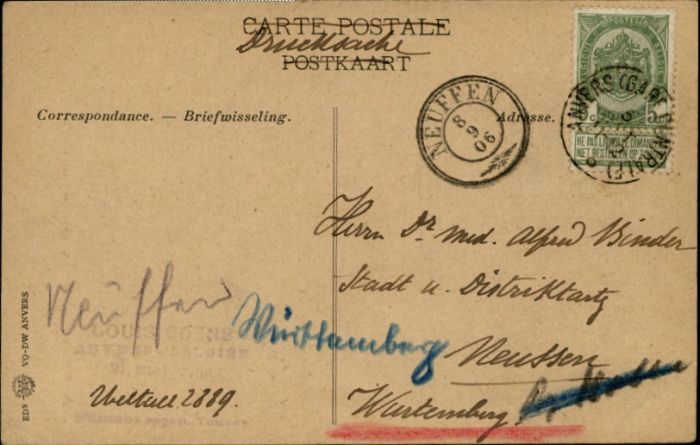 CARTE POSTALE
Drucksache
POSTKAART
Correspondance. — Briefwisseling.
Adresse.
NEUFFEN
8
9
06
ANVERS (GARE CENTRALE)
NE PAS LIVRER LE DIMANCHE
NIET BESTELLEN OP ZONDAG
Herrn Dr med. Alfred Binder
Stadt u. Distriktartz
Neussen
Wurtemberg.
Neuffen
Württemberg
LOUIS COENS
Weltall 2889.
EDN VO-DW ANVERS